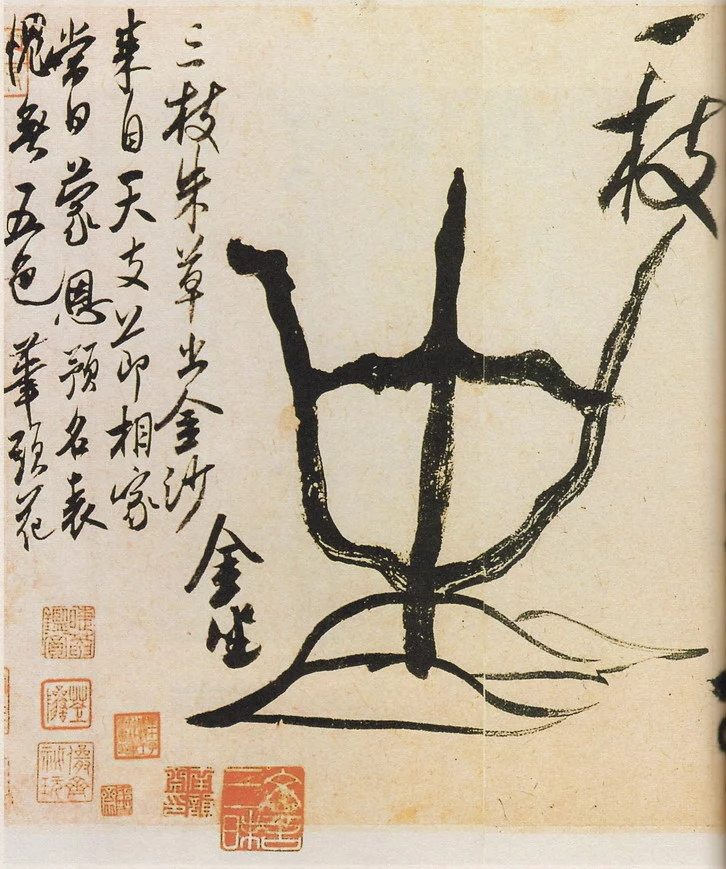 一枝
金坐
三枝朱草出金沙
來自天支節相家
當日蒙恩預名表
愧無五色筆頭花